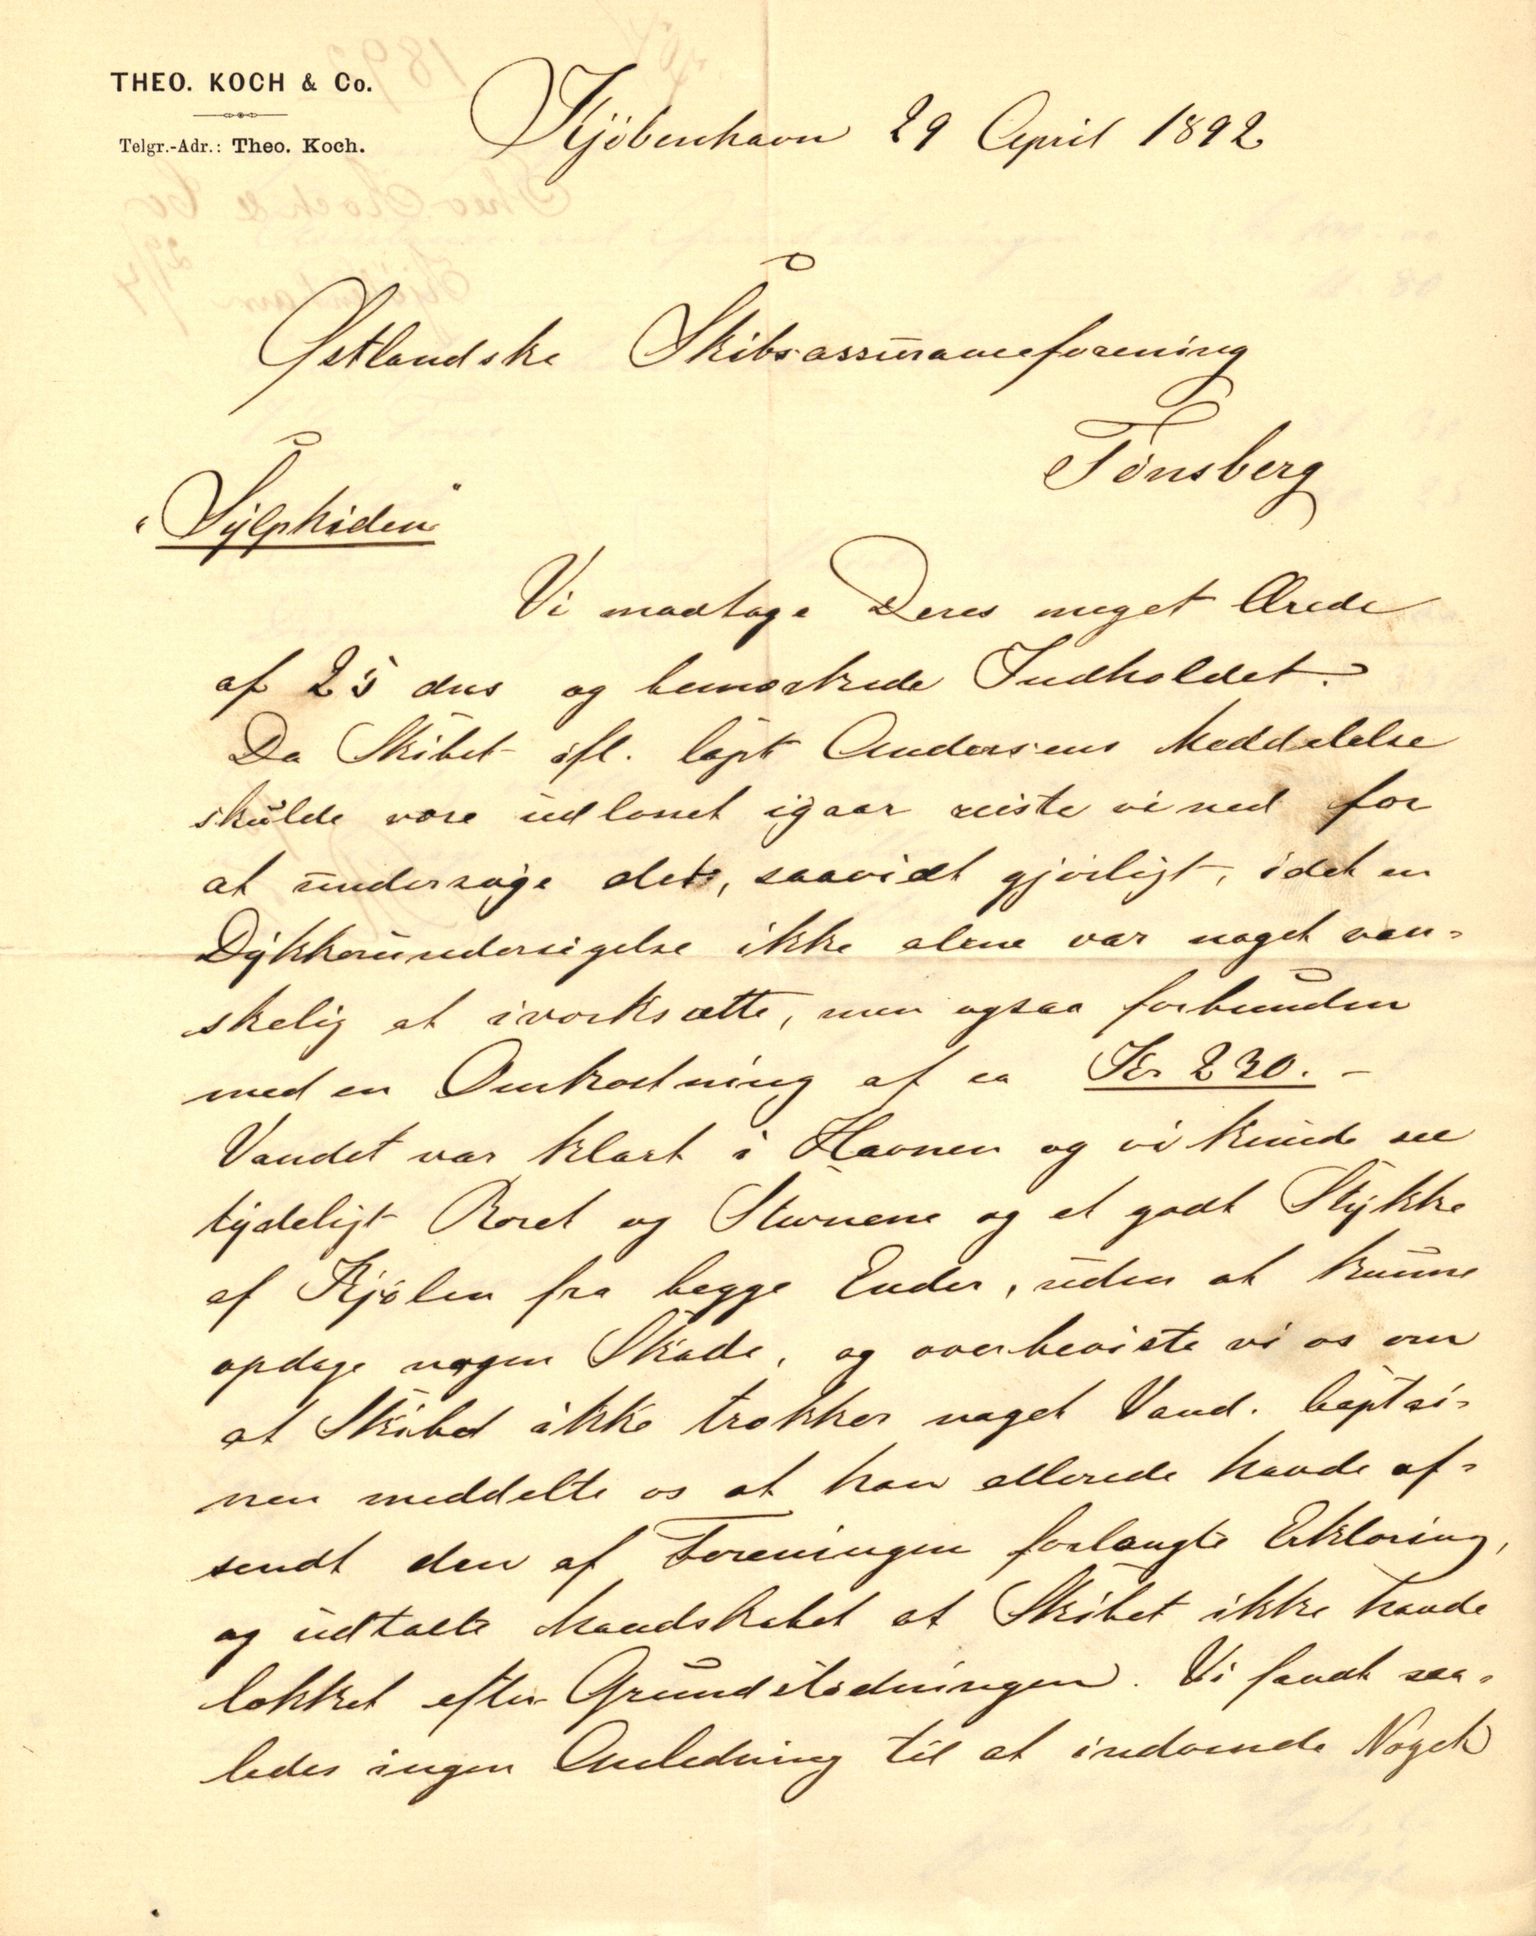 THEO. KOCH & Co.
Telgr.-Adr.: Theo. Koch.
Kjöbenhavn 29 April 1892
Østlandske Skibsassuranceforening
Tønsberg
"Sylphiden"
Vi modtage Deres meget Ærede
af 25 dns og bemærkede Indholdet.
Da Skibet ifl. Capt Andersens Meddelelse
skulde være udlosset igaar reiste vi ned for
at undersøge det, saavidt gjørligt, idet en
Dykkerundersøgelse ikke alene var noget van-
skelig at iværksætte, men ogsaa forbunden
med en Omkostning af ca Kr 230.-
Vandet var klart i Havnen og vi kunde see
tydeligt Roret og Stævnene og et godt Stykke
af Kjølen fra begge Ender, uden at kunne
opdage nogen Skade, og overbeviste vi os om
at Skibet ikke trækker noget Vand. Captai-
nen meddelte os at han allerede havde af-
sendt den af Foreningen forlangte Erklæring,
og udtalte Mandskabet at Skibet ikke havde
lækket efter Grundstødningen. Vi fandt saa-
ledes ingen Anledning til at indvende Noget